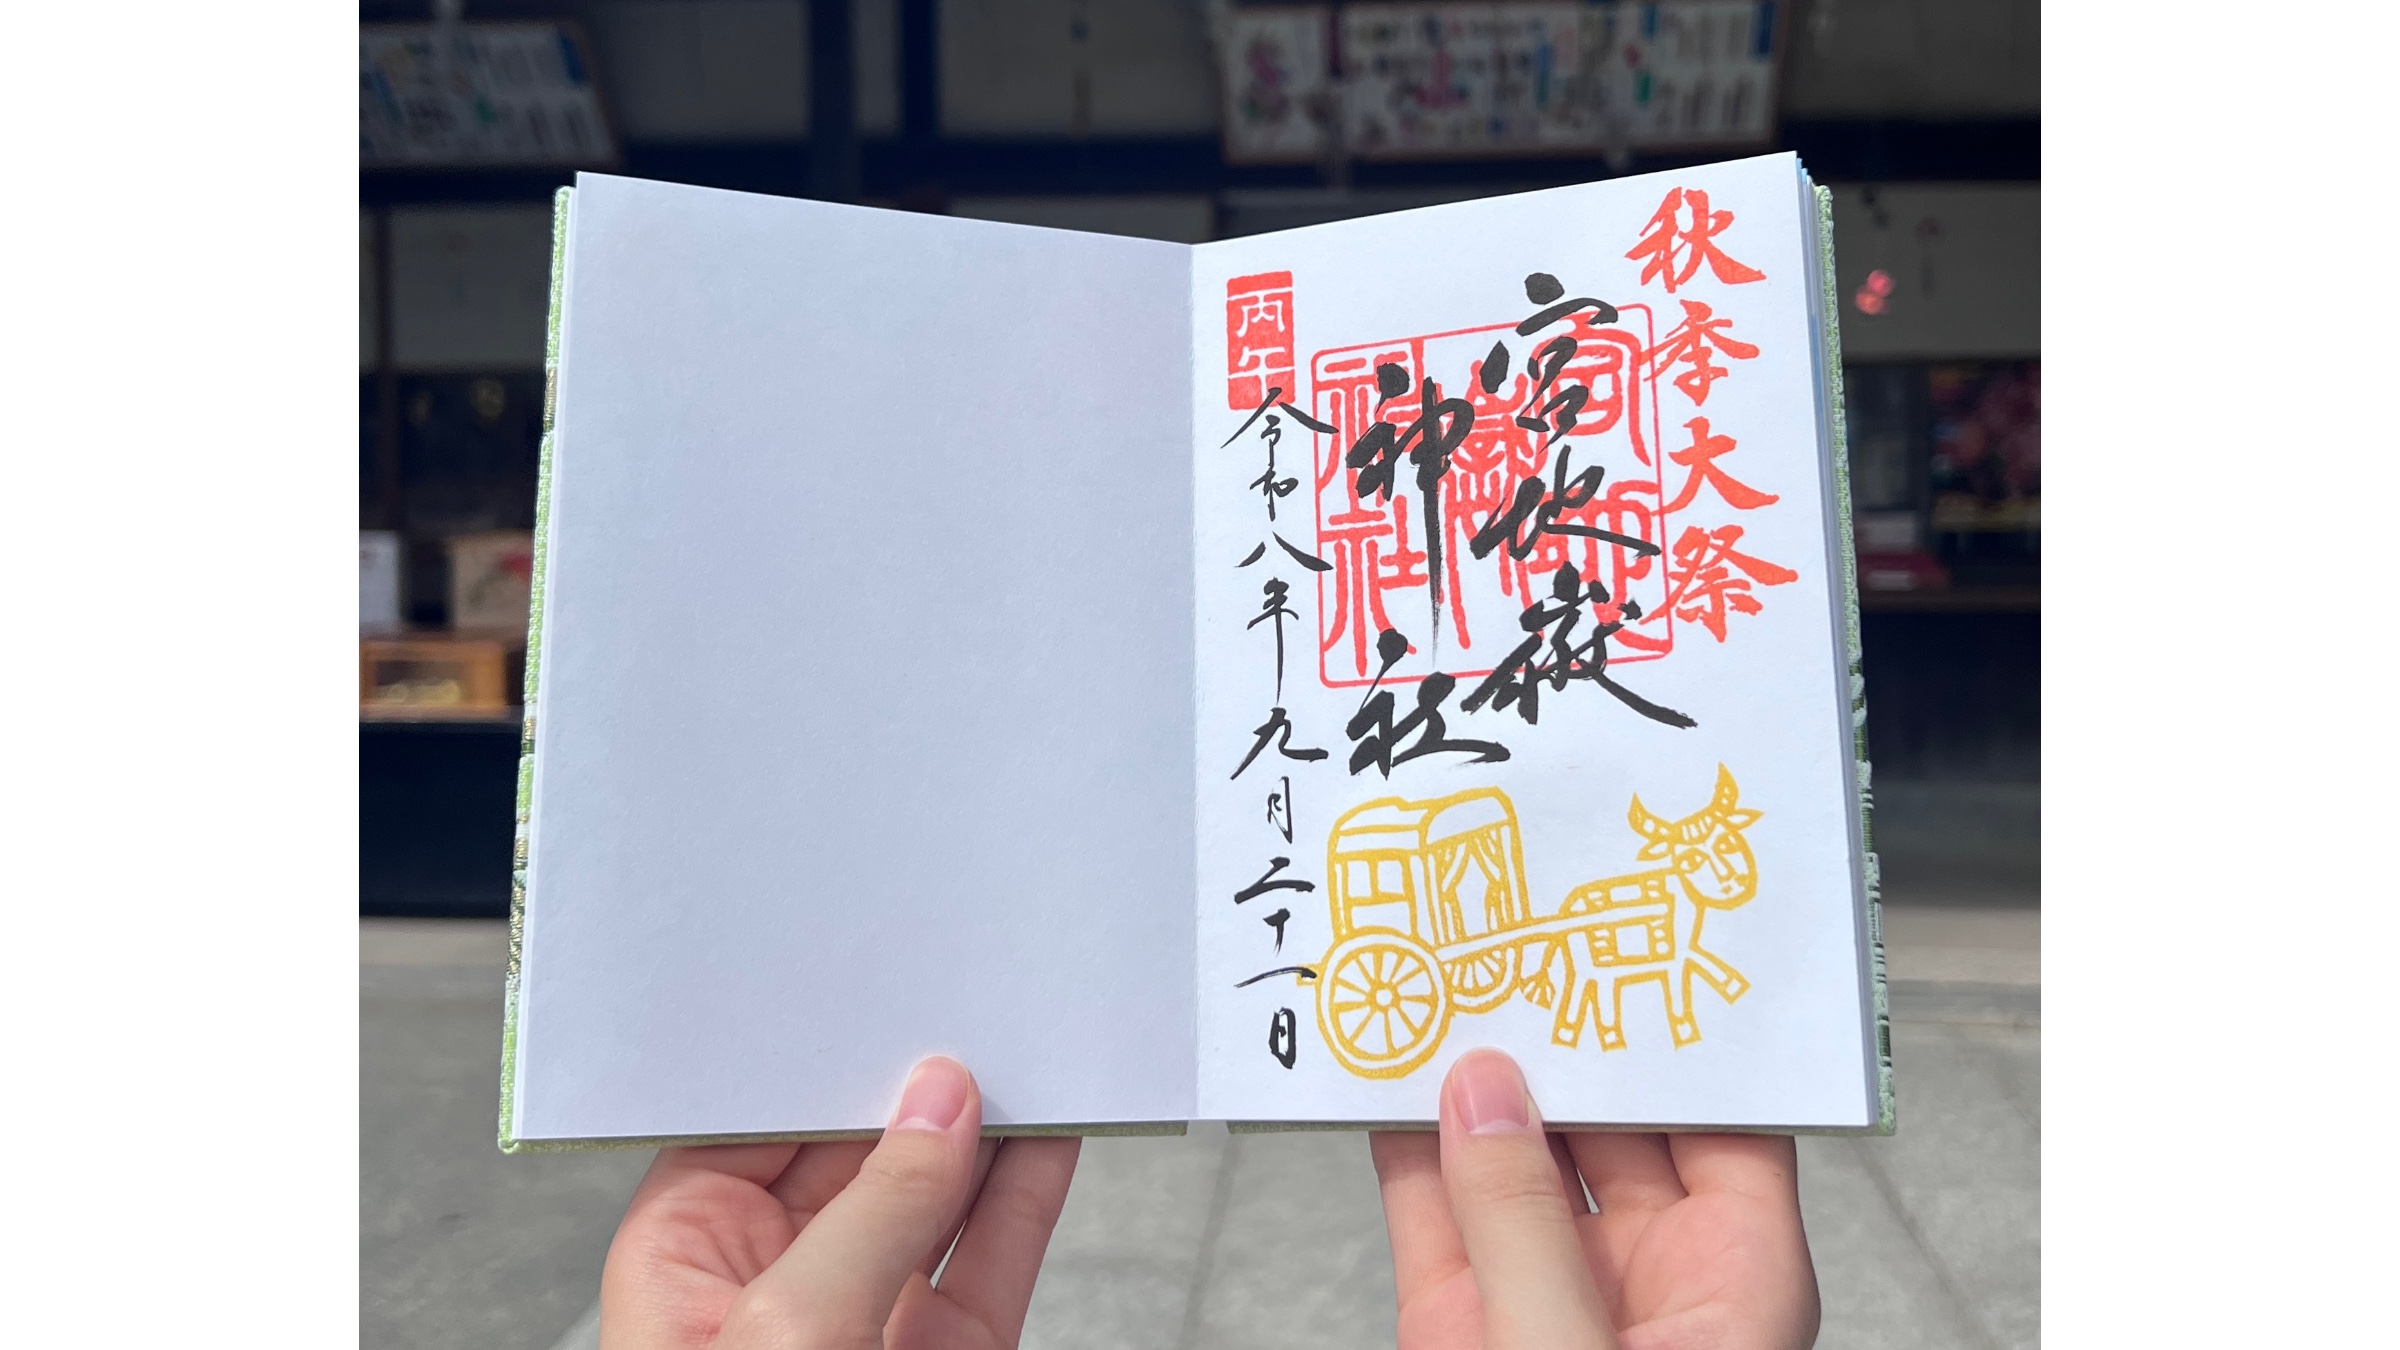 秋季大祭
宮地嶽
神社
宮地嶽神社
丙午
令和八年九月二十一日